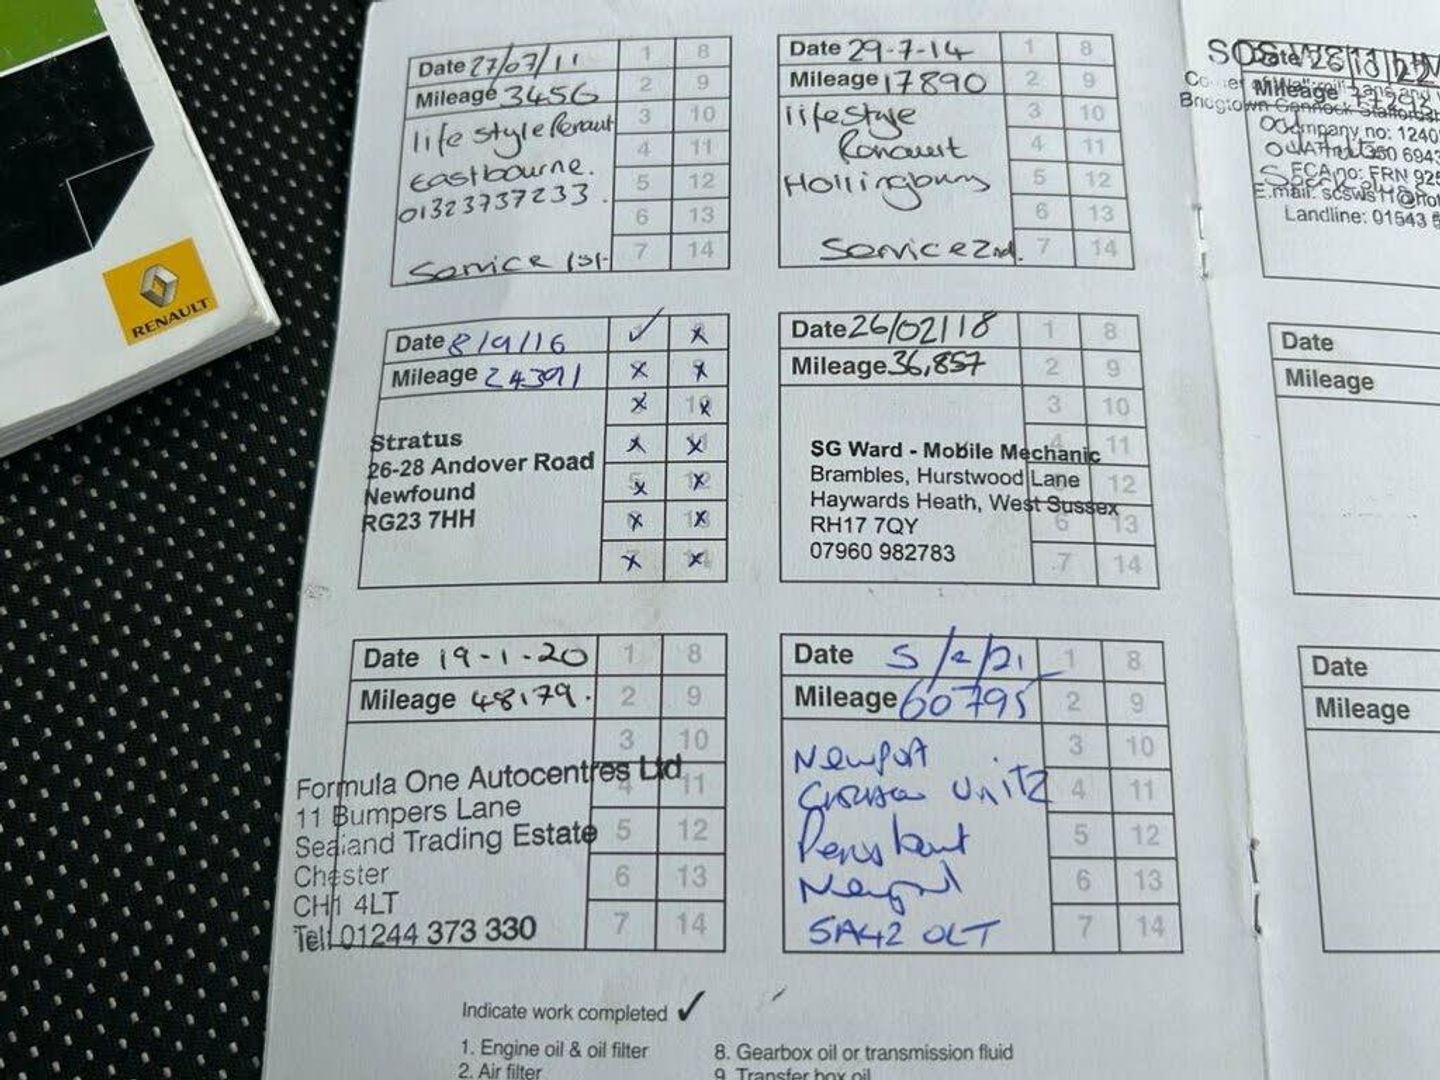 RENAULT
Date 27/07/11 1 8
Mileage 3456 2 9
3 10
life style Renaut
4 11
Eastbourne.
5 12
01323737233.
6 13
Service 1st 7 14
Date 29-7-14 1 8
Mileage 17890 2 9
lifestye 3 10
4 11
Hollingbury 5 12
6 13
Service 2nd. 7 14
Company no: 1240
FCA no: FRN 925
E.mail: scsws11@hot
Landline: 01543
Date 8/9/16
Mileage 24391
Stratus
26-28 Andover Road
Newfound
RG23 7HH
Date 26/02/18 1 8
Mileage 36,857 2 9
3 10
SG Ward - Mobile Mechanic 4 11
Brambles, Hurstwood Lane 12
Haywards Heath, West Sussex
RH17 7QY 6 13
07960 982783 7 14
Date
Mileage
Date 19-1-20 1 8
Mileage 48179. 2 9
3 10
Formula One Autocentres Ltd 4 11
11 Bumpers Lane
Sealand Trading Estate 5 12
Chester 6 13
CH1 4LT
Tel: 01244 373 330 7 14
Date 5/2/21 1 8
Mileage 60795 2 9
Newport 3 10
Unit 2 4 11
5 12
6 13
SA42 0LT 7 14
Date
Mileage
Indicate work completed ✓
1. Engine oil & oil filter
2. Air filter
8. Gearbox oil or transmission fluid
9. Transfer box oil